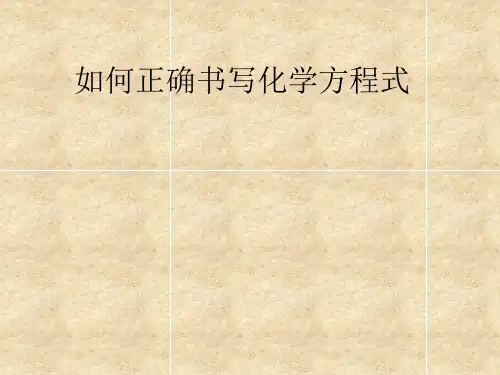 如何正确书写化学方程式